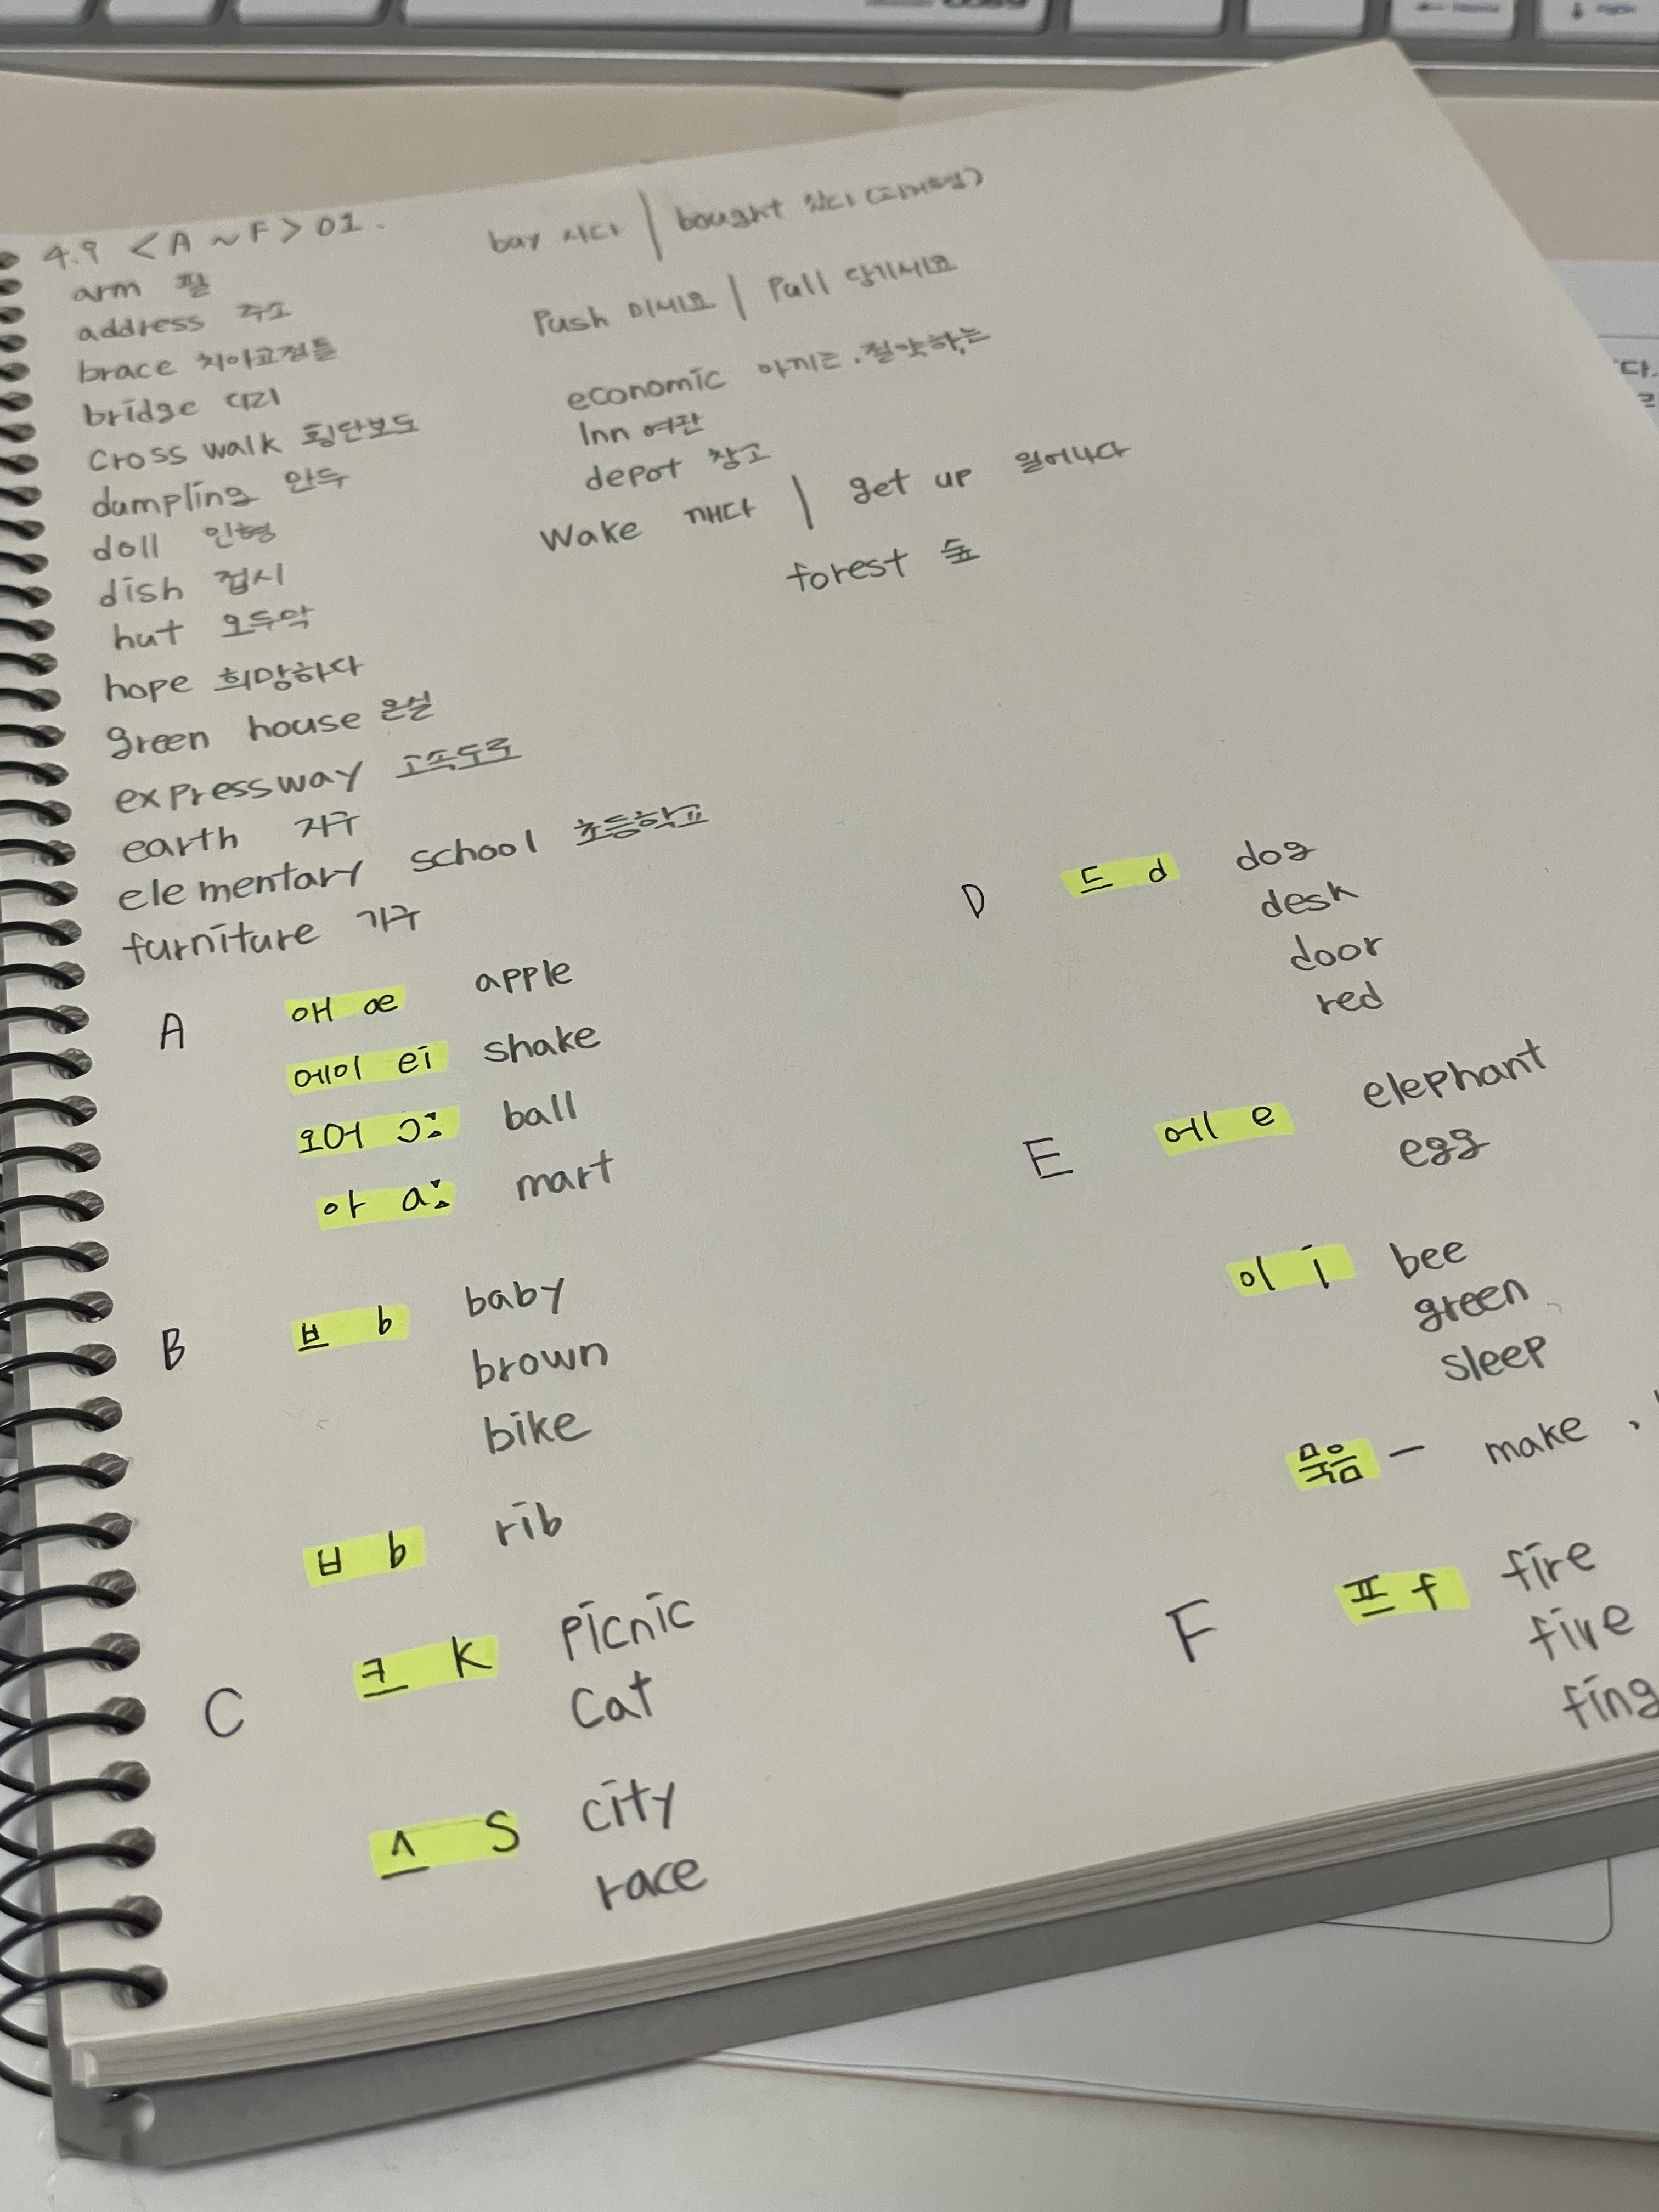 4.9 <A ~ F> 01.
arm 팔
address 주소
brace 치아교정틀
bridge 다리
cross walk 횡단보도
dumpling 만두
doll 인형
dish 접시
hut 오두막
hope 희망하다
green house 온실
expressway 고속도로
earth 지구
elementary school 초등학교
furniture 가구
buy 사다 | bought 샀다 (과거형)
Push 미세요 | Pull 당기세요
economic 아끼는. 절약하는
Inn 여관
depot 창고
Wake 깨다 | get up 일어나다
forest 숲
A 애 æ apple
에이 ei shake
오어 ɔː ball
아 aː mart
B 브 b baby
brown
bike
ㅂ b rib
C 크 K picnic
cat
스 S city
race
D 드 d dog
desk
door
red
E 에 e elephant
egg
이 i bee
green
sleep
묵음 — make .
F 프 f fire
five